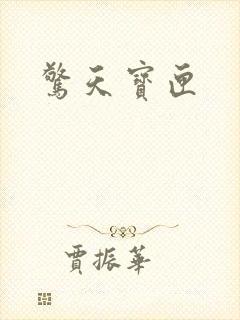 驚天寶匣
賈振華